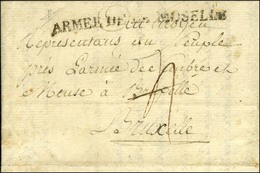 ARMEE DE LA MOSELLE
Représentans du Peuple
près L'armée de Sambre et
Meuse à Bruxelle
Bruxelle